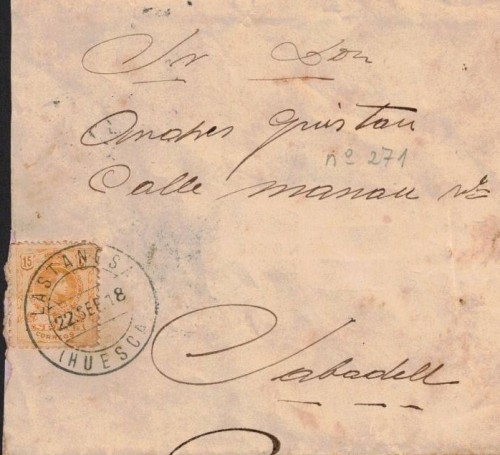 Sr Don
Andres Guistau
nº 271
Calle manau
15
CORREOS
LASTANOSA
22 SEP 18
(HUESCA)
Sabadell